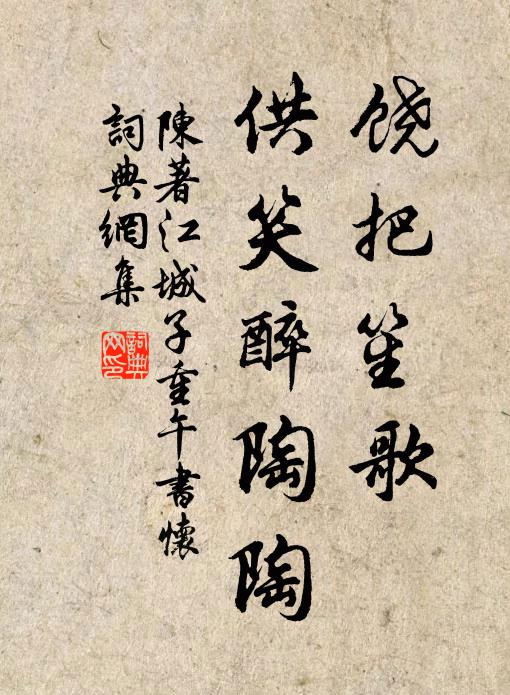 饶把笙歌
供笑醉陶陶
陳著江城子重午書懷
詞典網集
詞典
网印